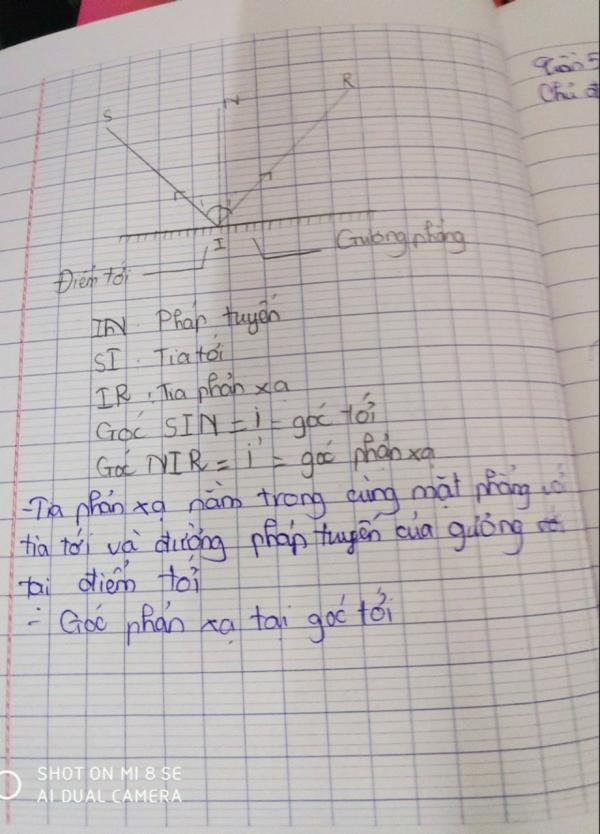 Tuần 5
Chủ đ
S
N
R
i
I
Gương phẳng
Điểm tới
IN Pháp tuyến
SI . Tia tới
IR . Tia phản xạ
Góc SIN = i = góc tới
Góc NIR = i' = góc phản xạ
- Tia phản xạ nằm trong cùng mặt phẳng với
tia tới và đường pháp tuyến của gương
tại điểm tới
- Góc phản xạ tại góc tới
SHOT ON MI 8 SE
AI DUAL CAMERA